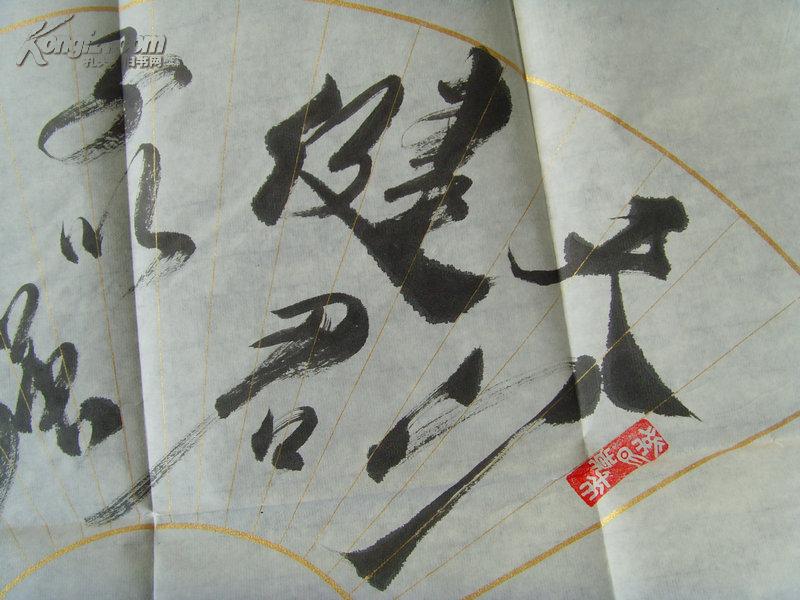 天行
健君
子以
Kongfz.com
孔夫子旧书网